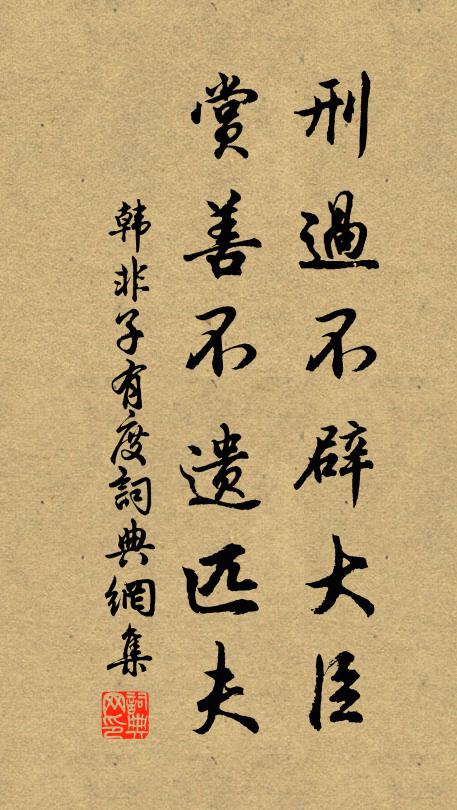 刑過不辟大臣
賞善不遺匹夫
韩非子有度詞典網集
詞典网印